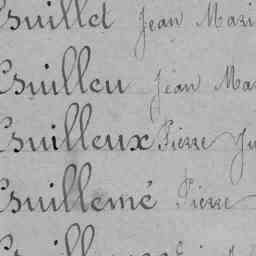 Guillet Jean Mari
Guilleu Jean Ma
Guilleux Pierre Ju
Guillemé Pierre